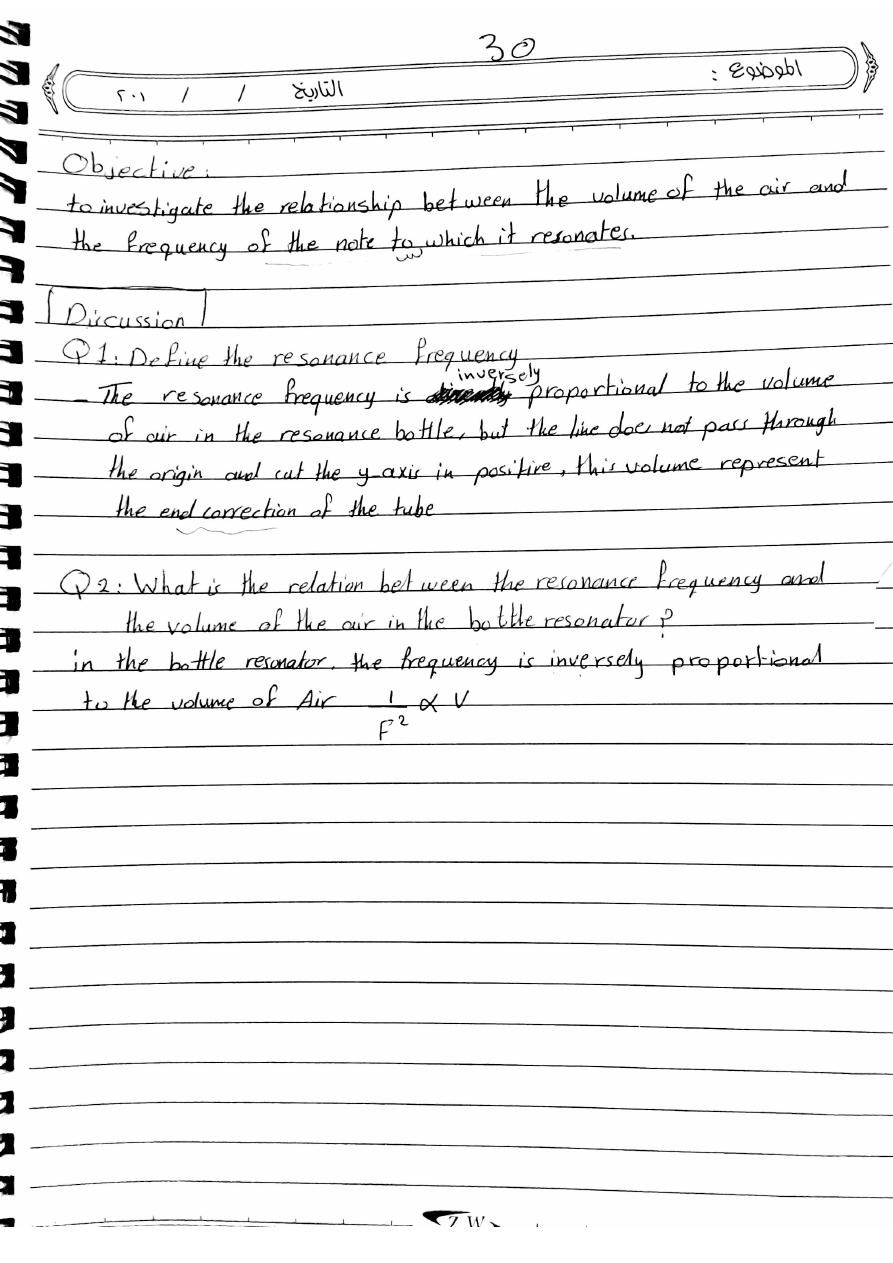 30
الموضوع :
التاريخ / / ٢٠١
Objective:
to investigate the relationship between the volume of the air and
the frequency of the note to which it resonates.
Discussion
Q1: Define the resonance frequency
inversely
- The resonance frequency is proportional to the volume
of air in the resonance bottle, but the line does not pass through
the origin and cut the y-axis in positive, this volume represent
the end correction of the tube
Q2: What is the relation between the resonance frequency and
the volume of the air in the bottle resonator?
in the bottle resonator. the frequency is inversely proportional
to the volume of Air 1/F² ∝ V